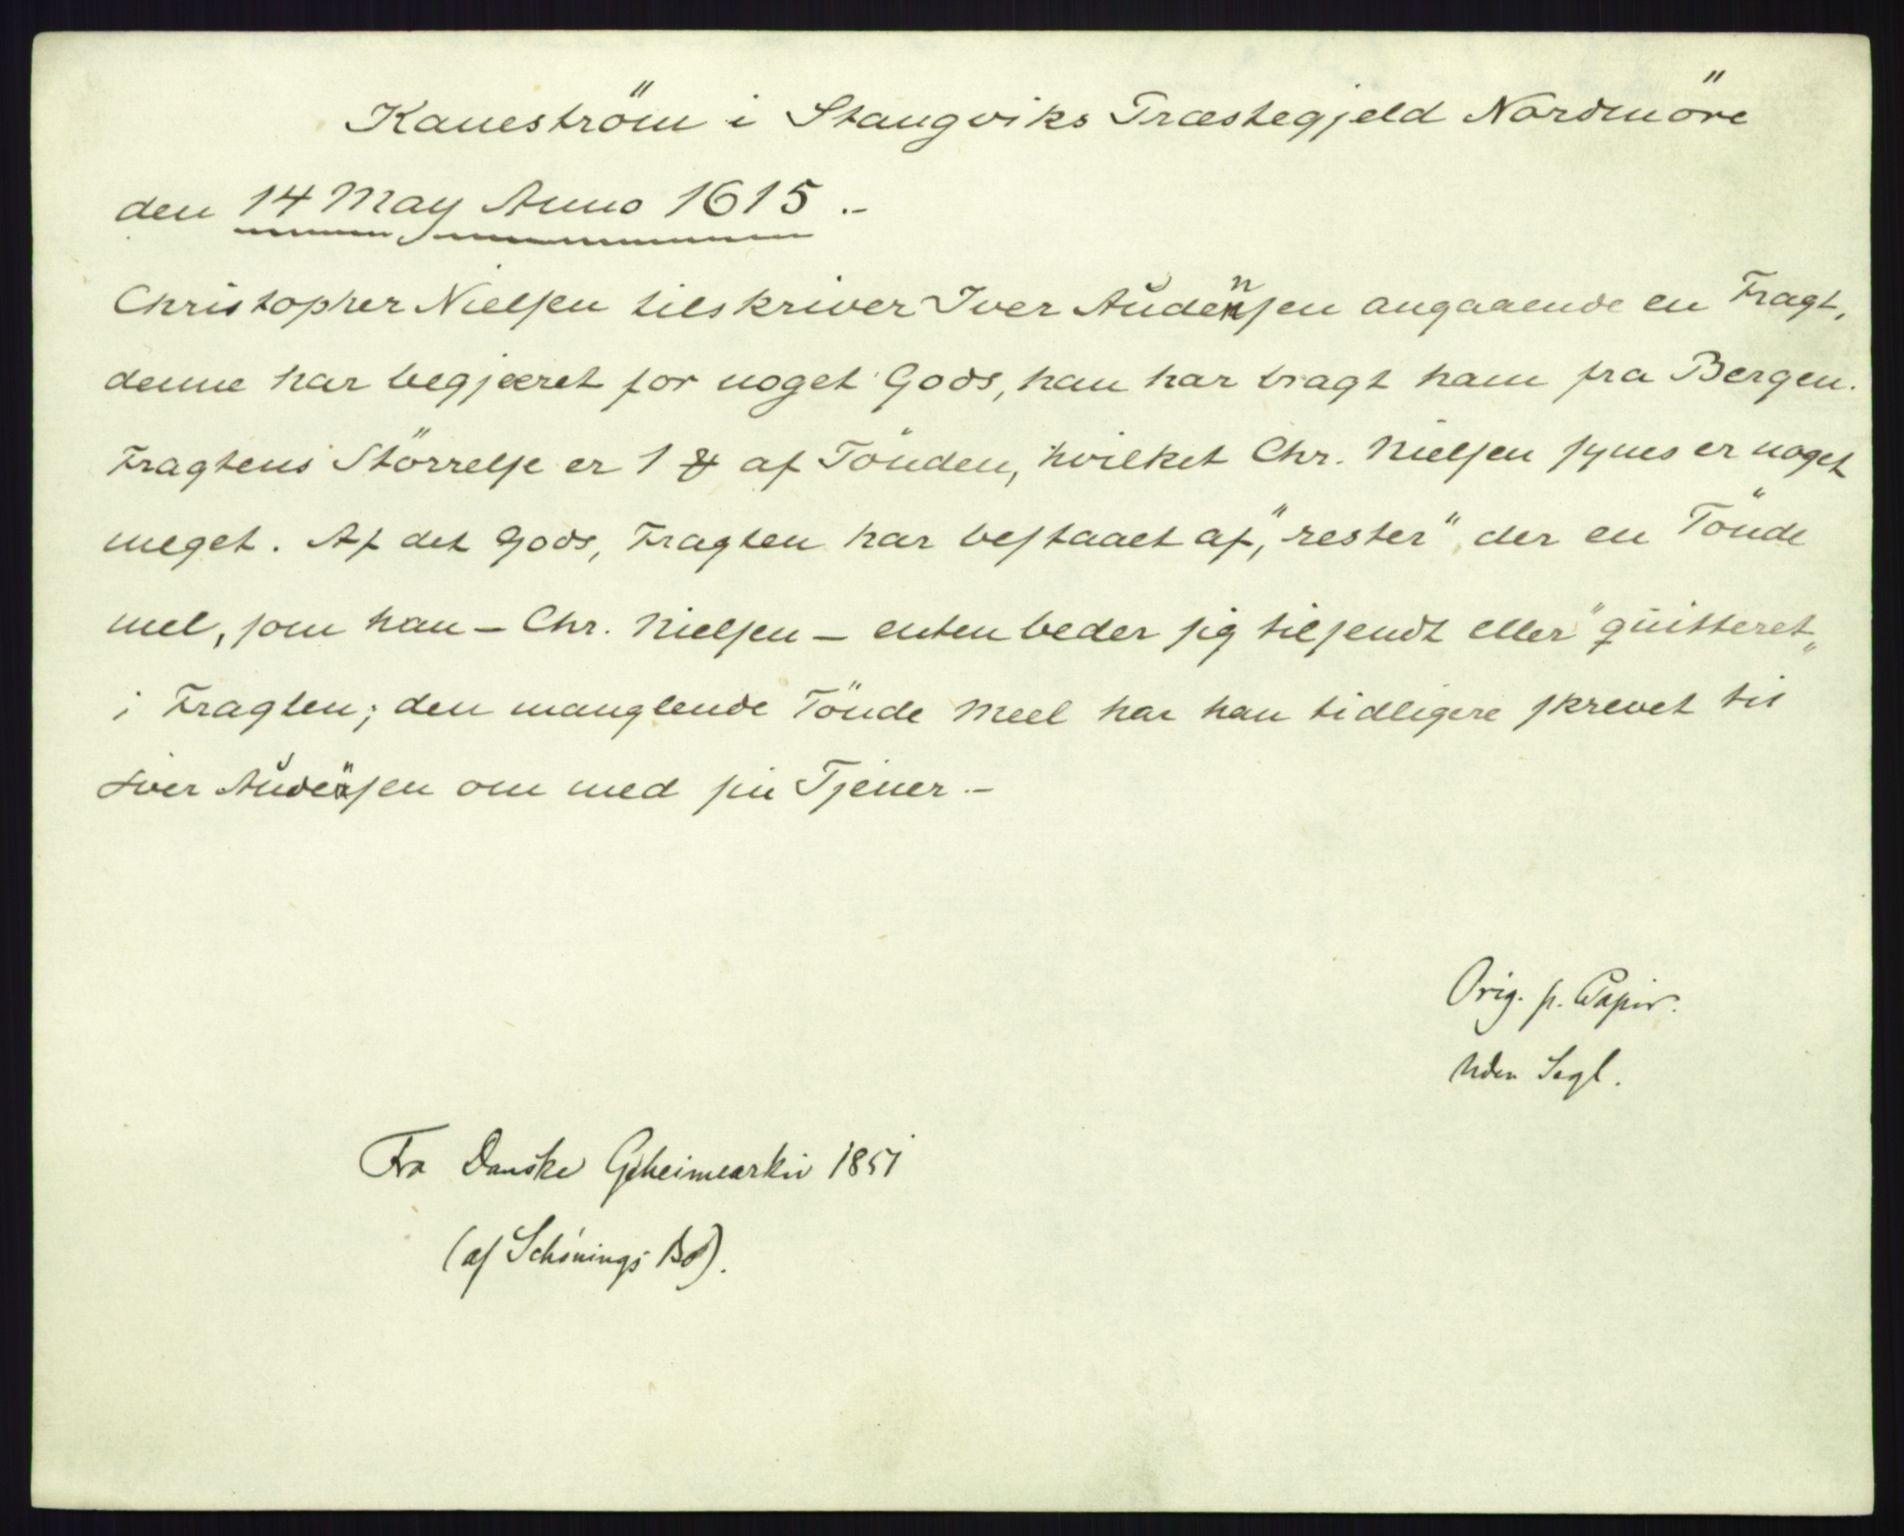 Kaneström i Stangviks Præstegjeld Nordmöre
den 14 May Anno 1615.-
Christopher Nielsen tilskriver Iver Audensen angaaende en Fragt,
denne har begjæret for noget Gods, han har bragt ham fra Bergen.
Fragtens Störrelse er 1 af Tönden, hvilket Chr. Nielsen synes er noget
meget. Af det Gods, Fragten har bestaaet af, "rester" der en Tönde
mel, som han - Chr. Nielsen - enten beder sig tilsendt eller "quitteret"
i Fragten; den manglende Tönde Meel har han tidligere skrevet til
Iver Audensen om med sin Tjener.-
Orig. p. Papir.
Uden Segl.
Fra Danske Geheimearkiv 1851
(af Schönings Bo).